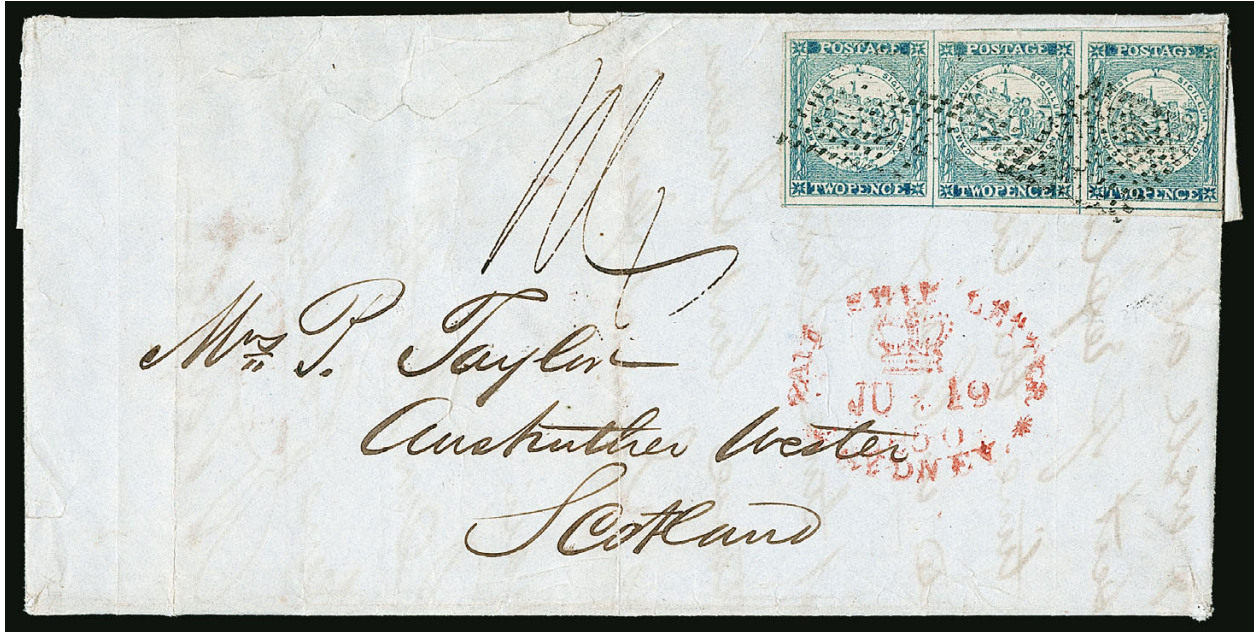 POSTAGE POSTAGE POSTAGE
TWOPENCE TWOPENCE TWOPENCE
Mrs P. Taylor
Anstruther Wester
Scotland
PAID SHIP LETTER
JU 19
SYDNEY